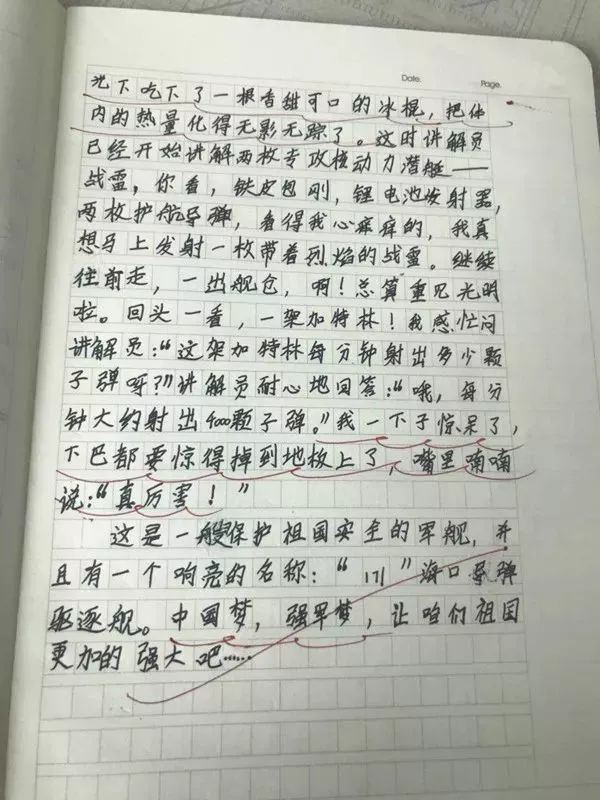 Date. Page.
光下吃下了一根香甜可口的冰棍，把体
内的热量化得无影无踪了。这时讲解员
已经开始讲解两枚专攻核动力潜艇——
战雷，你看，铁皮包刚，锂电池发射器，
两枚护航导弹，看得我心痒痒的，我真
想马上发射一枚带着烈焰的战雷。继续
往前走，一出舰仓，啊！总算重见光明
啦。回头一看，一架加特林！我感忙问
讲解员：“这架加特林每分钟射出多少颗
子弹呀？”讲解员耐心地回答：“哦，每分
钟大约射出4000颗子弹。”我一下子惊呆了，
下巴都要惊得掉到地板上了，嘴里喃喃
说：“真厉害！”
这是一艘保护祖国安全的军舰，并
且有一个响亮的名称：“171”海口导弹
驱逐舰。中国梦，强军梦，让咱们祖国
更加的强大吧……